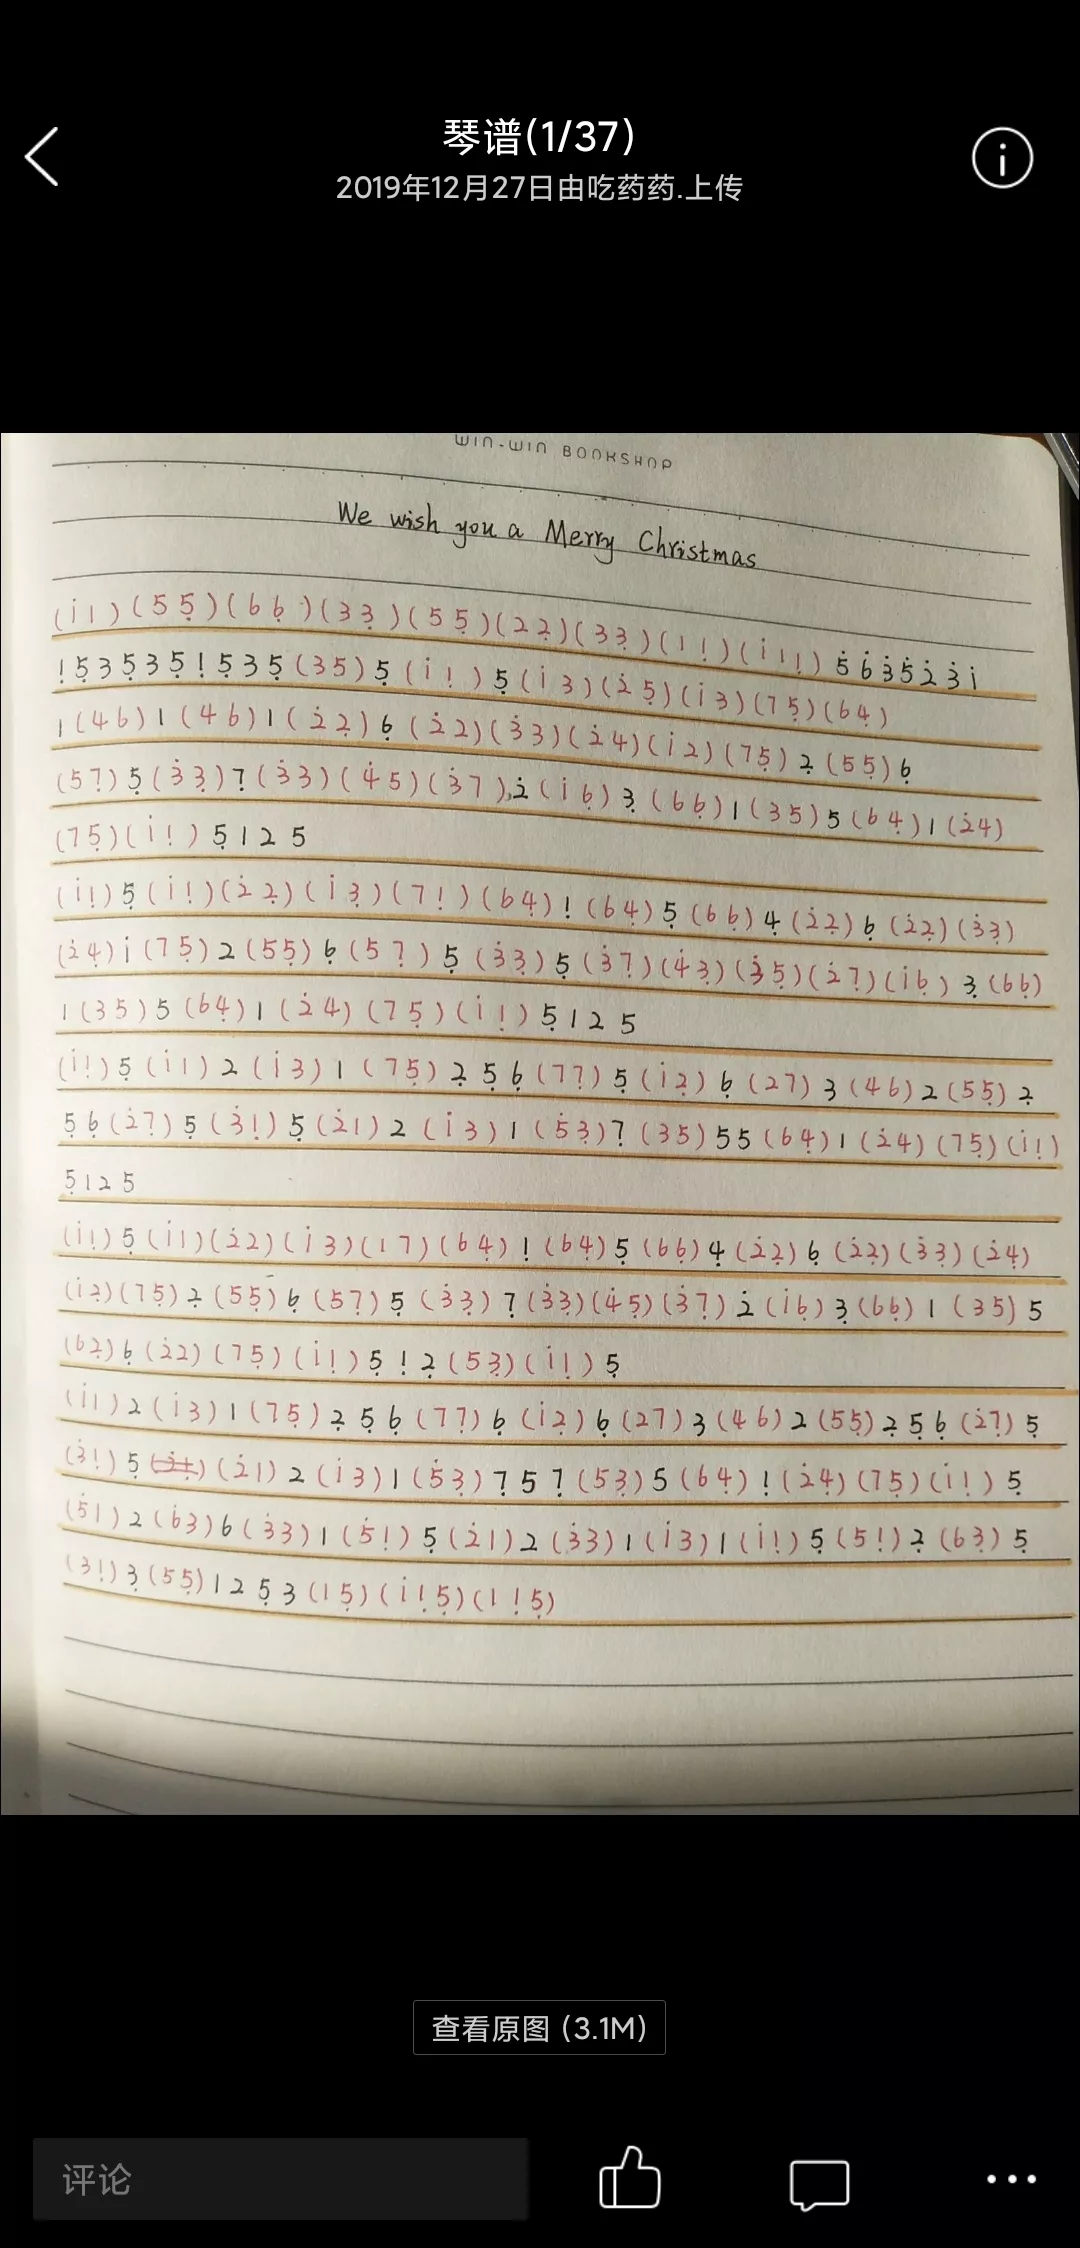 琴谱(1/37)
2019年12月27日由吃药药.上传
WIN-WIN BOOKSHOP
We wish you a Merry Christmas
(i̇1)(55̣)(66̣)(33̣)(55̣)(22̣)(33̣)(11̣)(i̇11̣)5̇6̇3̇5̇2̇3̇i̇
1̣5̣35̣35̣1̣5̣35̣(35)5̣(i̇1̣)5̣(i̇3)(2̇5̣)(i̇3)(75̣)(64̣)
1(46)1(46)1(2̇2̣)6̣(2̇2)(3̇3)(2̇4)(i̇2)(75̣)2̣(55̣)6̣
(57̣)5̣(3̇3̣)7̣(3̇3)(4̇5)(3̇7)2̇(i̇6̣)3̣(66̣)1(35)5(64̣)1(2̇4)
(75̣)(i̇1̣)5̣125
(i̇1̣)5̣(i̇1̣)(2̇2̣)(i̇3̣)(71̣)(64̣)1̣(64̣)5̣(66̣)4̣(2̇2̣)6̣(2̇2̣)(3̇3̣)
(2̇4̣)i̇(75̣)2(55̣)6̣(57̣)5̣(3̇3̣)5̣(3̇7̣)(4̇3̣)(3̇5̣)(2̇7̣)(i̇6̣)3̣(66̣)
1(35)5(64̣)1(2̇4)(75̣)(i̇1̣)5̣125
(i̇1̣)5̣(i̇1)2(i̇3)1(75̣)2̣5̣6̣(77̣)5̣(i̇2̣)6̣(27)3(46)2(55̣)2̣
5̣6̣(2̇7̣)5̣(3̇1̣)5̣(2̇1)2(i̇3)1(5̇3̣)7̣(35)55(64̣)1(2̇4)(75̣)(i̇1̣)
5̣125
(i̇1̣)5̣(i̇1)(2̇2)(i̇3)(17)(64̣)1̣(64̣)5̣(66̣)4̣(2̇2̣)6̣(2̇2̣)(3̇3̣)(2̇4̣)
(i̇2̣)(75̣)2̣(55̣)6̣(57̣)5̣(3̇3̣)7̣(3̇3̣)(4̇5̣)(3̇7̣)2̇(i̇6̣)3̣(66̣)1(35)5
(62̣)6̣(2̇2)(75̣)(i̇1̣)5̣1̣2̣(53̣)(i̇1̣)5̣
(i̇1)2(i̇3)1(75̣)2̣5̣6̣(77̣)6̣(i̇2̣)6̣(27)3(46)2(55̣)2̣5̣6̣(2̇7̣)5̣
(3̇1̣)5̣(2̇1)2(i̇3)1(5̇3̣)7̣57̣(53̣)5(64̣)1̣(2̇4̣)(75̣)(i̇1̣)5̣
(5̇1)2(6̇3)6(3̇3)1(5̇1̣)5̣(2̇1)2(3̇3)1(i̇3)1(i̇1̣)5̣(51̣)2̣(63̣)5̣
(31̣)3̣(55̣)125̣3(15̣)(i̇1̣5̣)(11̣5̣)
查看原图 (3.1M)
评论